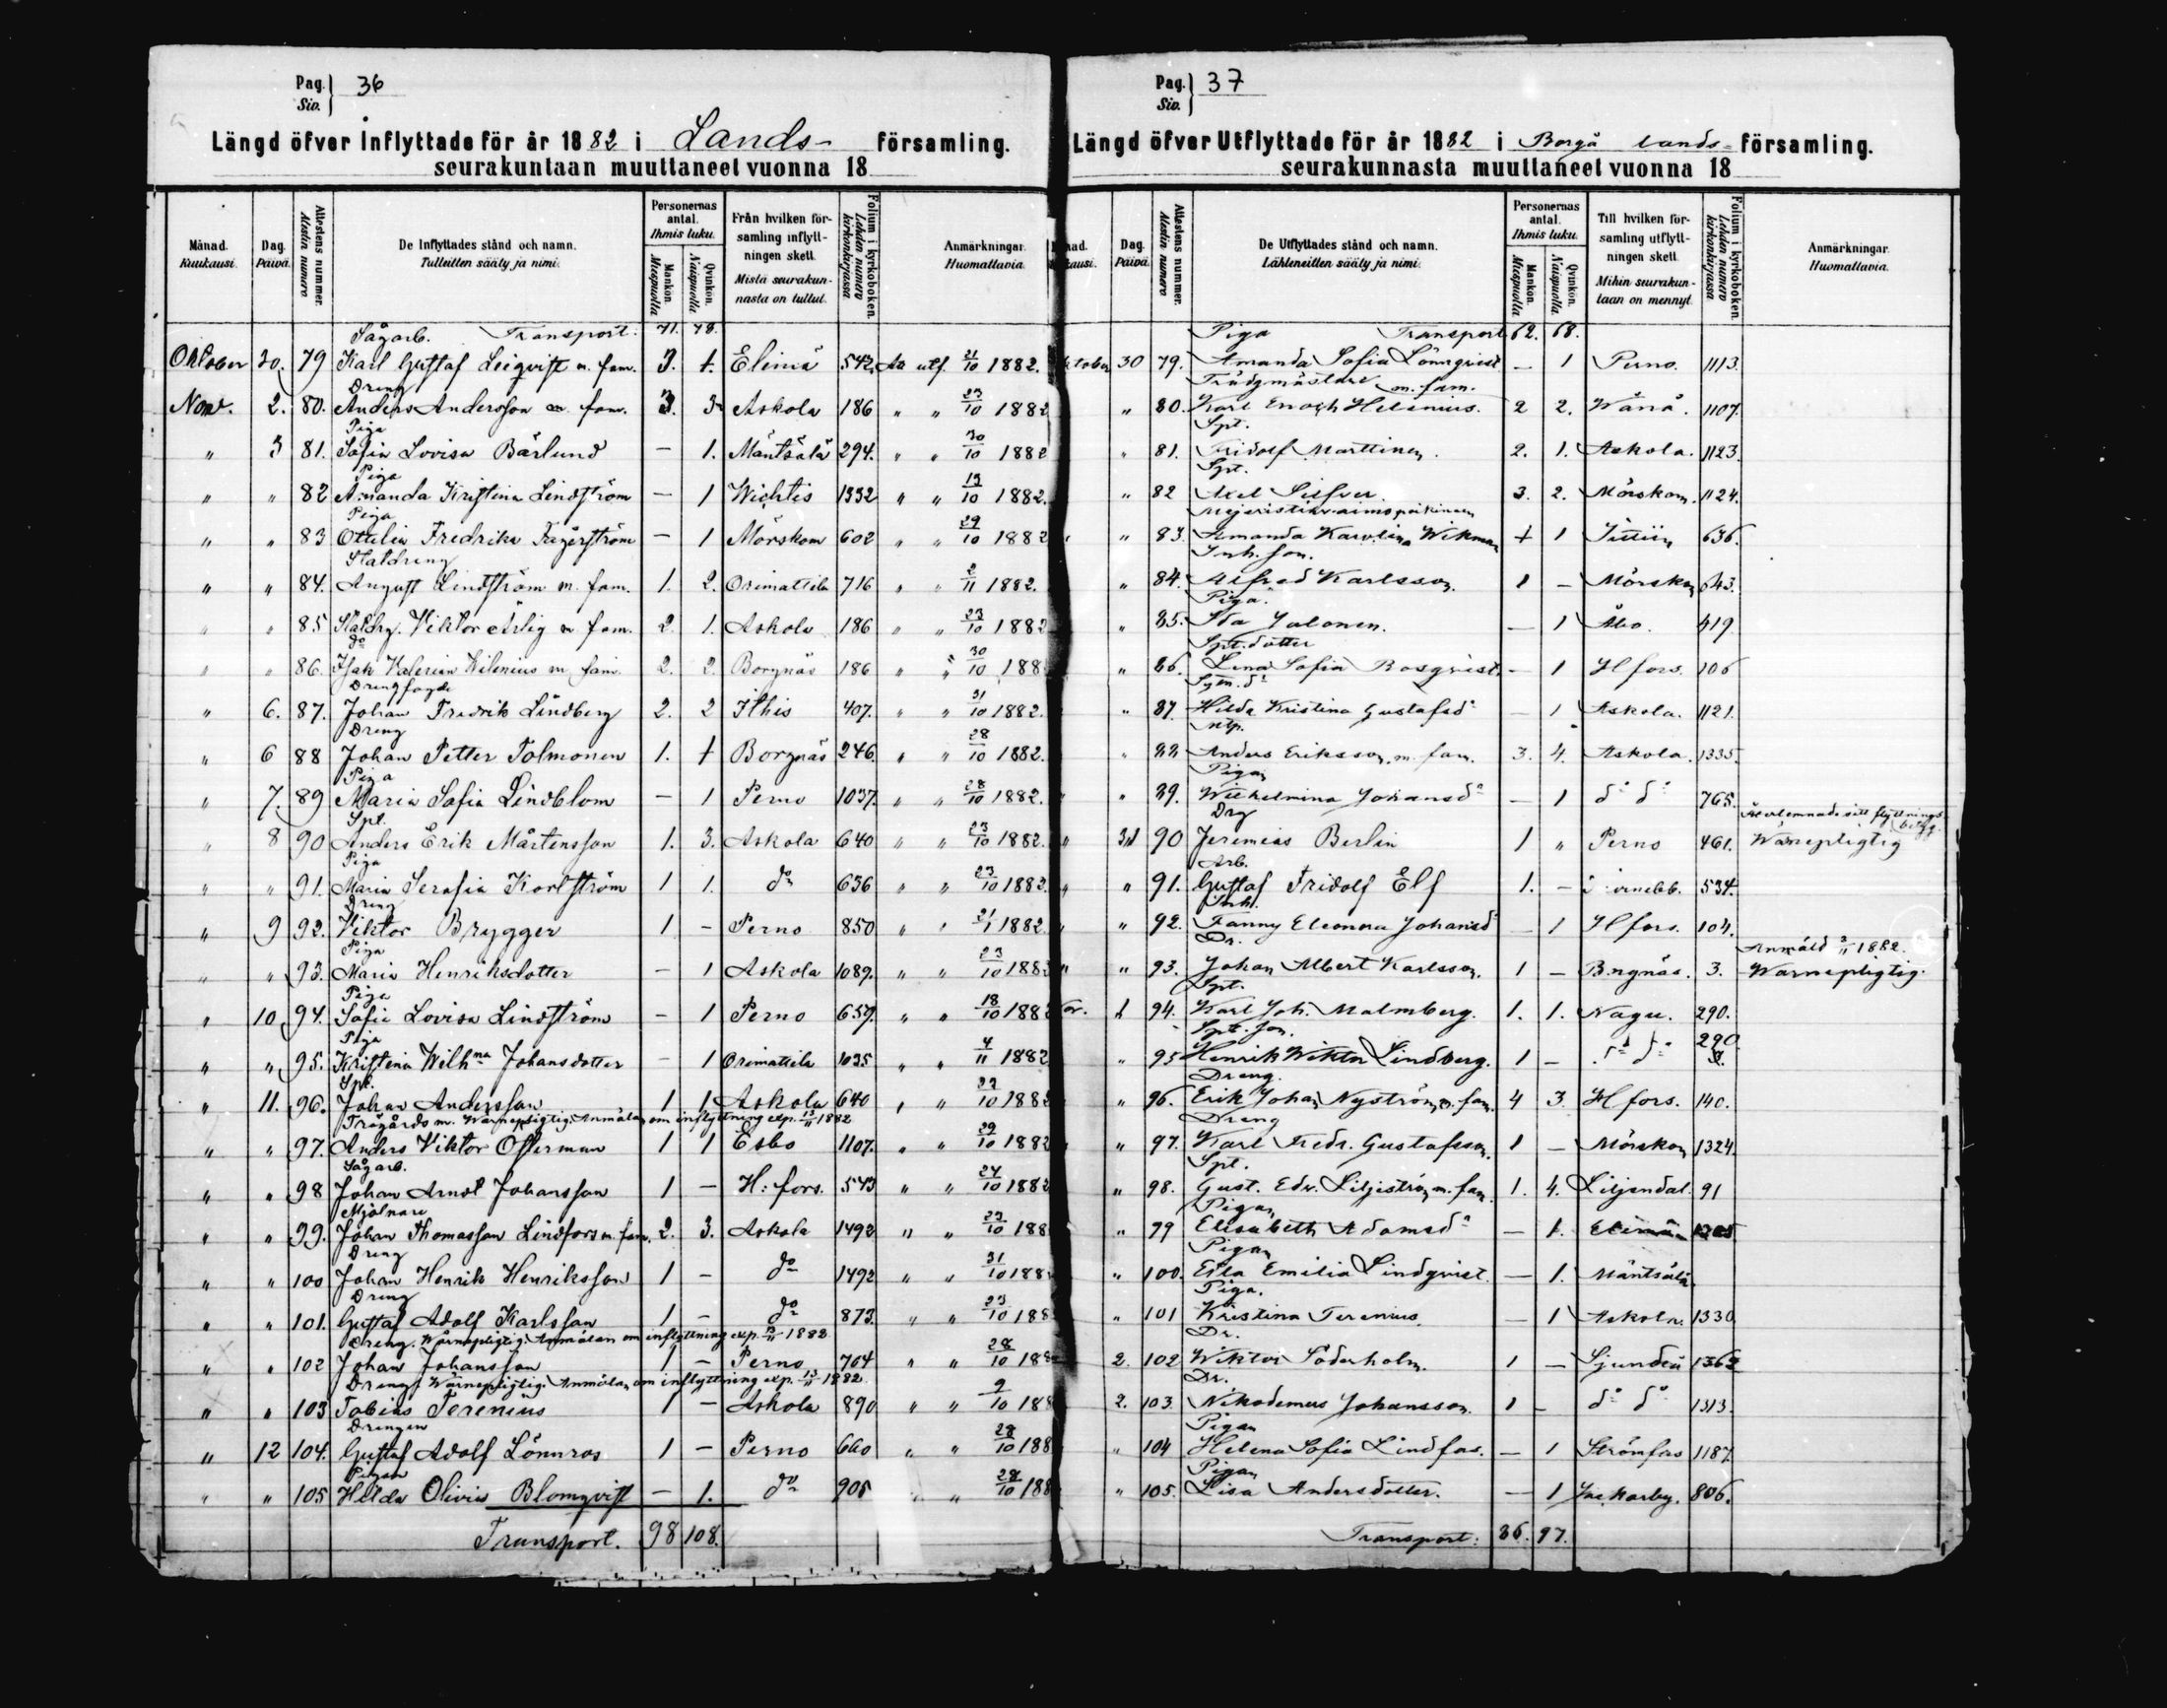 Pag. 36
Siv.
Längd öfver Inflyttade för år 1882 i Lands- församling.
seurakuntaan muuttaneet vuonna 18
Månad. Kuukausi. Dag. Päivä. Attestens nummer. Atestin numero De Inflyttades stånd och namn. Tulleitten sääty ja nimi. Personernas antal. Ihmis luku. Mankön. Miespuolia Qvinkön. Naispuolia Från hvilken församling inflyttningen skett. Mistä seurakunnasta on tullut. Folium i kyrkoboken. Lehden numero kirkonkirjassa Anmärkningar. Huomattavia.
Sågarb. Transport: 71. 78.
Oktober 30. 79 Karl Gustaf Leiqvist m. fam. 3. 1. Elimä 542 Att utf. 21/10 1882.
Dreng
Nov. 2. 80. Anders Andersson m. fam. 3. 3 Askola 186 " " 23/10 1882
Piga
" 3 81. Sofia Lovisa Bärlund — 1. Mäntsälä 294. " " 30/10 1882
Piga
" " 82 Amanda Kristina Lindström — 1 Wichtis 1332 " " 13/10 1882.
Piga
" " 83 Ottilia Fredrika Fagerström — 1 Mörskom 602 " " 29/10 1882
Statdreng
" " 84. August Lindström m. fam. 1. 2. Orimattila 716 " " 2/11 1882.
" " 85 Statdrg. Viktor Ärlig m. fam. 2. 1. Askola 186 " " 23/10 1882
do
" " 86. Isak Valerian Vilenius m. fam. 2. 2. Borgnäs 186 " " 30/10 188
Drengfogde
" 6. 87. Johan Fredrik Lindberg 2. 2 Ithis 407. " " 31/10 1882.
Dreng
" 6 88 Johan Petter Tolmonen 1. 1 Borgnäs 246. " " 28/10 1882.
Piga
" 7. 89 Maria Sofia Lindblom — 1 Perno 1037. " " 28/10 1882.
Spt.
" 8 90 Anders Erik Mårtensson 1. 3. Askola 640 " " 23/10 1882.
Piga
" " 91. Maria Serafia Karlström 1 1. do 636 " " 23/10 1882.
Dreng
" 9 92. Viktor Brygger 1 - Perno 850 " " 21/1 1882
Piga
" " 93. Maria Henriksdotter — 1 Askola 1089. " " 23/10 1882
Piga
" 10 94. Sofia Lovisa Lindström — 1 Perno 659. " " 18/10 1882
Piga
" " 95. Kristina Wilhna Johansdotter — 1 Orimattila 1035 " " 4/11 1882
Spt.
" 11. 96. Johan Andersson 1 1 Askola 640 " " 23/10 1882
Trägårds m. Wärnepligtig. Anmälan om inflyttning exp. 13/11 1882
" " 97. Anders Viktor Österman 1 1 Esbo 1107. " " 29/10 1882
Sågarb.
" " 98 Johan Arnst Johansson 1 - H:fors. 543 " " 24/10 1882
Mjölnare
" " 99. Johan Thomasson Lindfors m. fam. 2. 3. Askola 1492 " " 23/10 188
Dreng
" " 100 Johan Henrik Henriksson 1 - do 1492 " " 31/10 188
Dreng
" " 101. Gustaf Adolf Karlsson 1 - do 873. " " 23/10 188
Dreng. Wärnepligtig. Anmälan om inflyttning exp. 13/11 1882
" " 102 Johan Johansson 1 - Perno 704 " " 28/10 188
Dreng Wärnepligtig. Anmälan om inflyttning exp. 13/11 1882.
" " 103 Tobias Terenius 1 - Askola 890 " " 9/10 188
Drengen
" 12 104. Gustaf Adolf Lönnros 1 - Perno 660 " " 28/10 188
Pigan
" " 105 Hilda Olivia Blomqvist — 1. do 905 " " 28/10 188
Transport. 98 108.
Pag. 37
Siv.
Längd öfver Utflyttade för år 1882 i Borgå lands- församling.
seurakunnasta muuttaneet vuonna 18
nad. kausi. Dag. Päivä. Attestens nummer. Atestin numero De Utflyttades stånd och namn. Lähteneitten sääty ja nimi. Personernas antal. Ihmis luku. Mankön. Miespuolia Qvinkön. Naispuolia Till hvilken församling utflyttningen skett. Mihin seurakuntaan on mennyt. Folium i kyrkoboken. Lehden numero kirkonkirjassa Anmärkningar. Huomattavia.
Piga Transport 62. 68.
ktober 30 79. Amanda Sofia Lönnqvist — 1 Perno. 1113.
Trädgmästare m. fam.
" 80. Karl Enoch Helenius. 2 2. Wånå. 1107.
Spt.
" 81. Fridolf Marttinen. 2. 1. Askola. 1123.
Spt.
" 82 Axel Silfver. 3. 2. Mörskom. 1124.
" 83. Amanda Karolina Wikman 1 Jittiin 636.
Inh. son.
" 84. Alfred Karlsson. 1 — Mörskom 643.
Piga.
" 85. Ida Jalonen. — 1 Åbo. 419.
Spt. dotter
" 86. Lena Sofia Rosqvist. — 1 Hfors. 106
" 87. Hilda Kristina Gustafsdr — 1 Askola. 1121.
" 88 Anders Eriksson, m. fam. 3. 4. Askola. 1335.
Pigan
" 89. Wilhelmina Johansdr — 1 do do 765.
Drg Återlemnade sitt flyttnings betyg.
" 31 90 Jeremias Berlin 1 " Perno 461. Wärnepligtig
Arb.
" 91. Gustaf Fridolf Elf 1. — 534.
Inh.
" 92. Fanny Eleonora Johansdr — 1 Hfors. 104.
Dr. Anmäld 3/11 1882.
" " 93. Johan Albert Karlsson. 1 — Borgnäs. 3. Wärnepligtig.
Spt.
ov. 1 94. Karl Joh. Malmberg. 1. 1. Nagu. 290.
Spt. son.
" 95 Henrik Wiktor Lindberg. 1 — do do 290
Dreng.
" 96. Erik Johan Nyström m. fam. 4 3. Hfors. 140.
Dreng
" 97. Karl Fredr. Gustafsson. 1 — Mörskom 1324.
Spt.
" 98. Gust. Edv. Liljeström m. fam. 1. 4. Liljendal. 91
Pigan
" 99 Elisabeth Adamsdr — 1. Elimä
Pigan
" 100. Edla Emilia Lindqvist. — 1. Mäntsälä
Piga.
" 101 Kristina Terenius. — 1 Askola. 1330.
Dr.
2. 102 Wiktor Söderholm. 1 — Sjundeå 1362
Dr.
2. 103. Nikodemus Johansson. 1 — do do 1313.
Pigan
" 104 Helena Sofia Lindfors. — 1 Strömfors 1187.
Pigan
" 105. Lisa Andersdotter. — 1 806.
Transport: 86. 97.